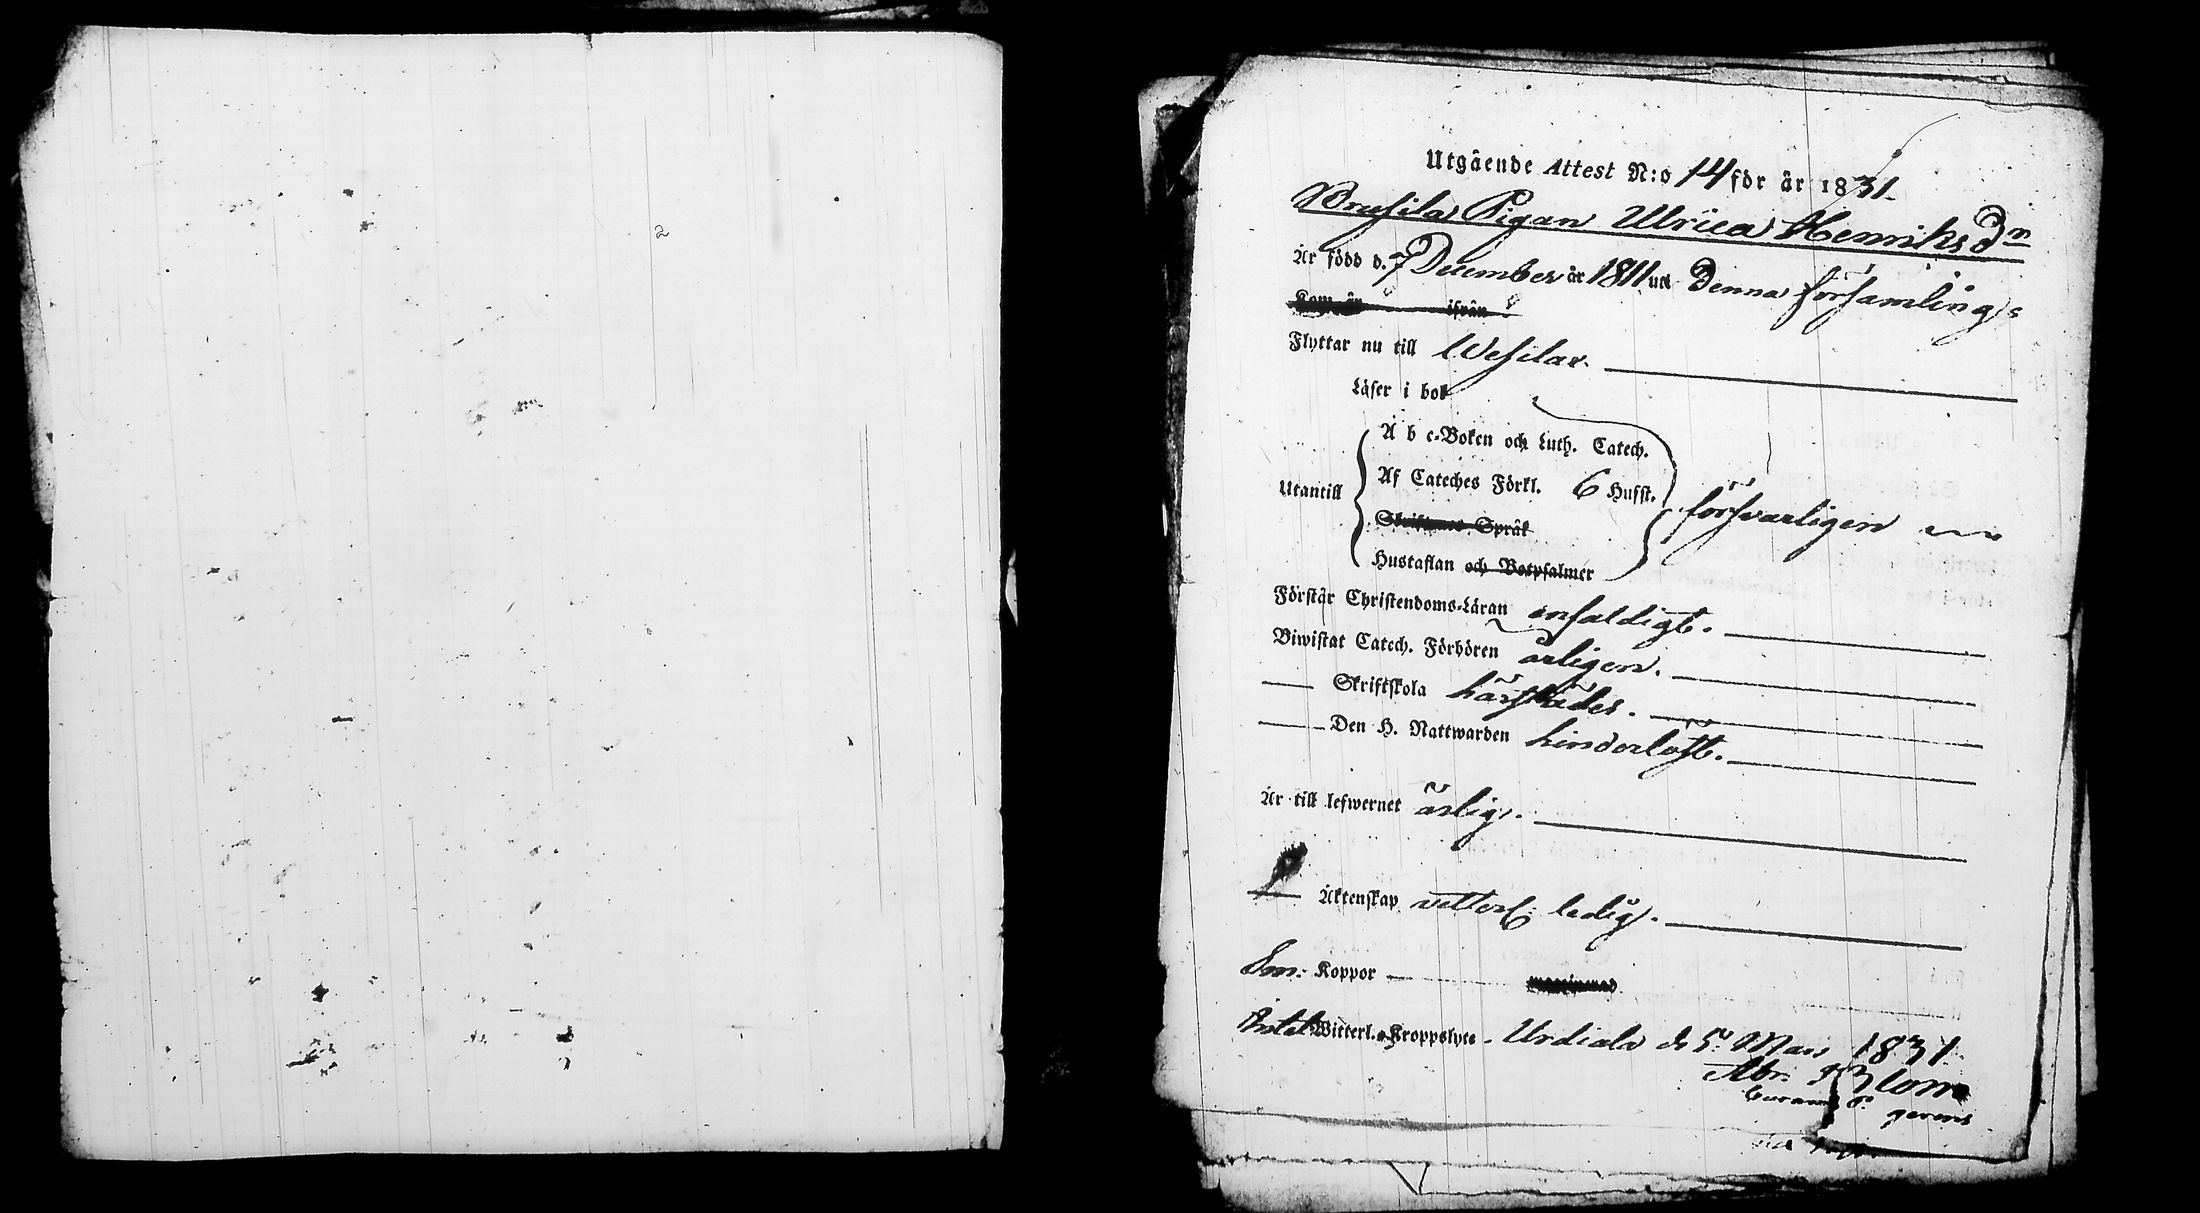 2
Utgående Attest N:o 14 för år 1831.
Pigan Ulrica Henriksdr
Är född d. 7 December år 1811 uti Denna församling
Kom år ifrån
Flyttar nu till Wesilax.
Läser i bok
A b c-Boken och Luth. Catech.
Af Cateches Förkl. 6 Hufst.
Utantill försvarligen
Skriftenes Språk
Hustaflan och Botpsalmer
Förstår Christendoms-Läran enfaldigt.
Biwistat Catech. Förhören årligen.
Skriftskola härstädes.
Den H. Nattwarden hinderlöst.
Är till lefwernet ärlig.
Äktenskap vetterl: ledig.
Koppor
Witterl. Kroppslyte. Urdiala d. 5 Mars 1831.
Abr. Blom
gerens